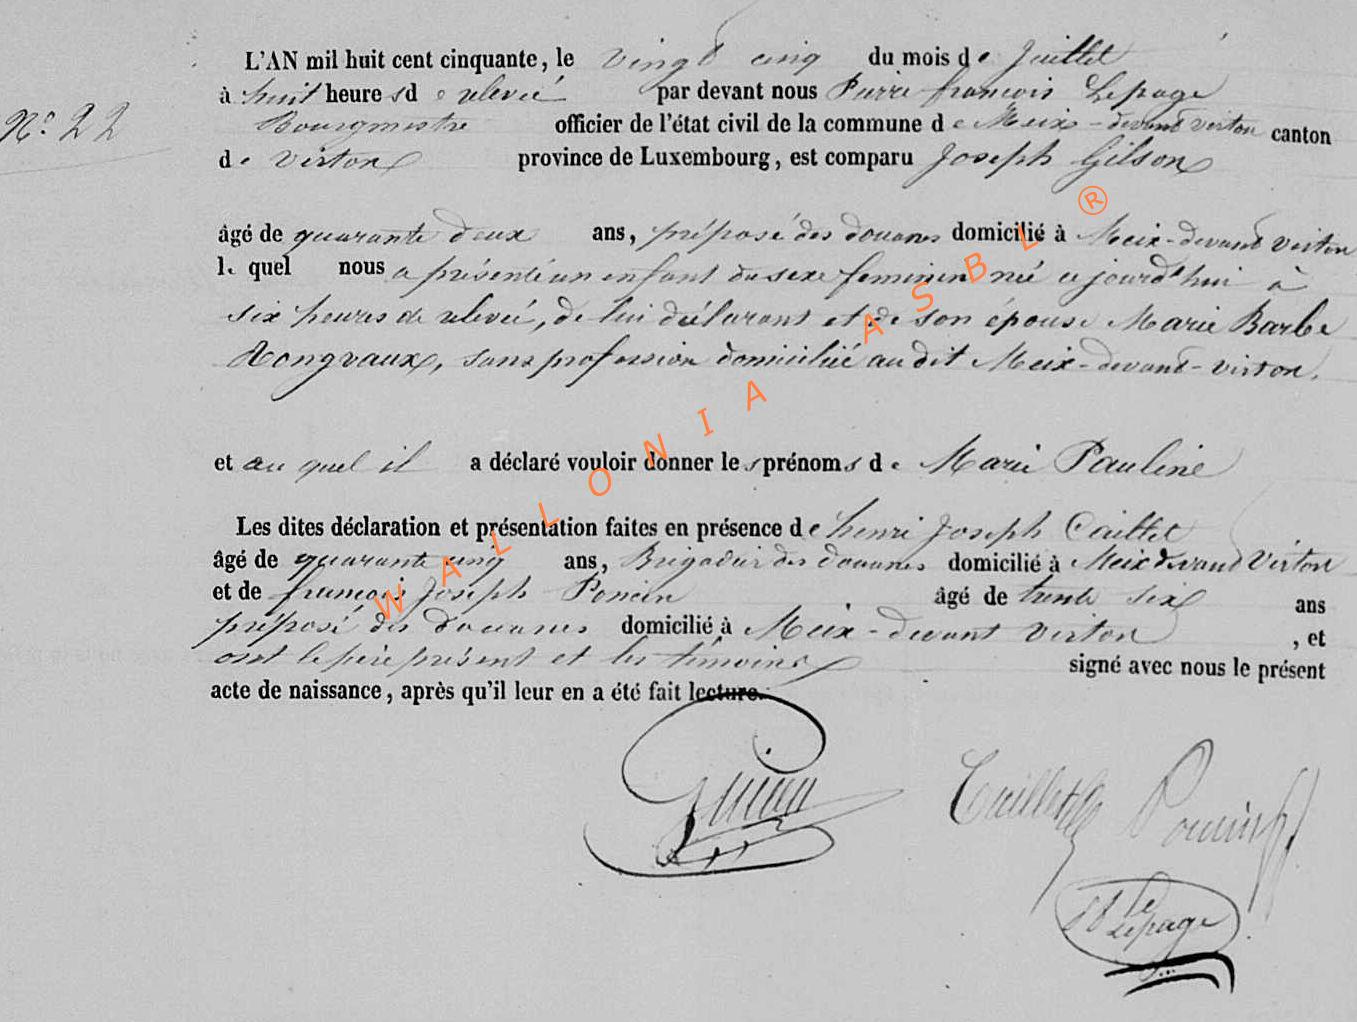 N° 22
L'AN mil huit cent cinquante, le vingt cinq du mois de Juillet
à huit heures de relevée par devant nous Pierre françois Lepage
Bourgmestre officier de l'état civil de la commune de Meix-devant virton canton
de virton province de Luxembourg, est comparu Joseph Gilson
âgé de quarante deux ans, préposé des douanes domicilié à Meix-devant virton
le quel nous a présenté un enfant du sexe feminin née cejourd'hui à
six heures de relevée, de lui déclarant et de son épouse Marie Barbe
Rongvaux, sans profession domiciliée au dit Meix-devant-virton.
et au quel il a déclaré vouloir donner les prénoms de Marie Pauline
Les dites déclaration et présentation faites en présence de henri Joseph Caillet
âgé de quarante cinq ans, Brigadier des douanes domicilié à Meix devant Virton
et de françois Joseph Poncin âgé de trente six ans
préposé des douanes domicilié à Meix-devant virton , et
ont le père présent et les témoins signé avec nous le présent
acte de naissance, après qu'il leur en a été fait lecture.
Caillet Poncin
Lepage
WALLONIA ASBL ®